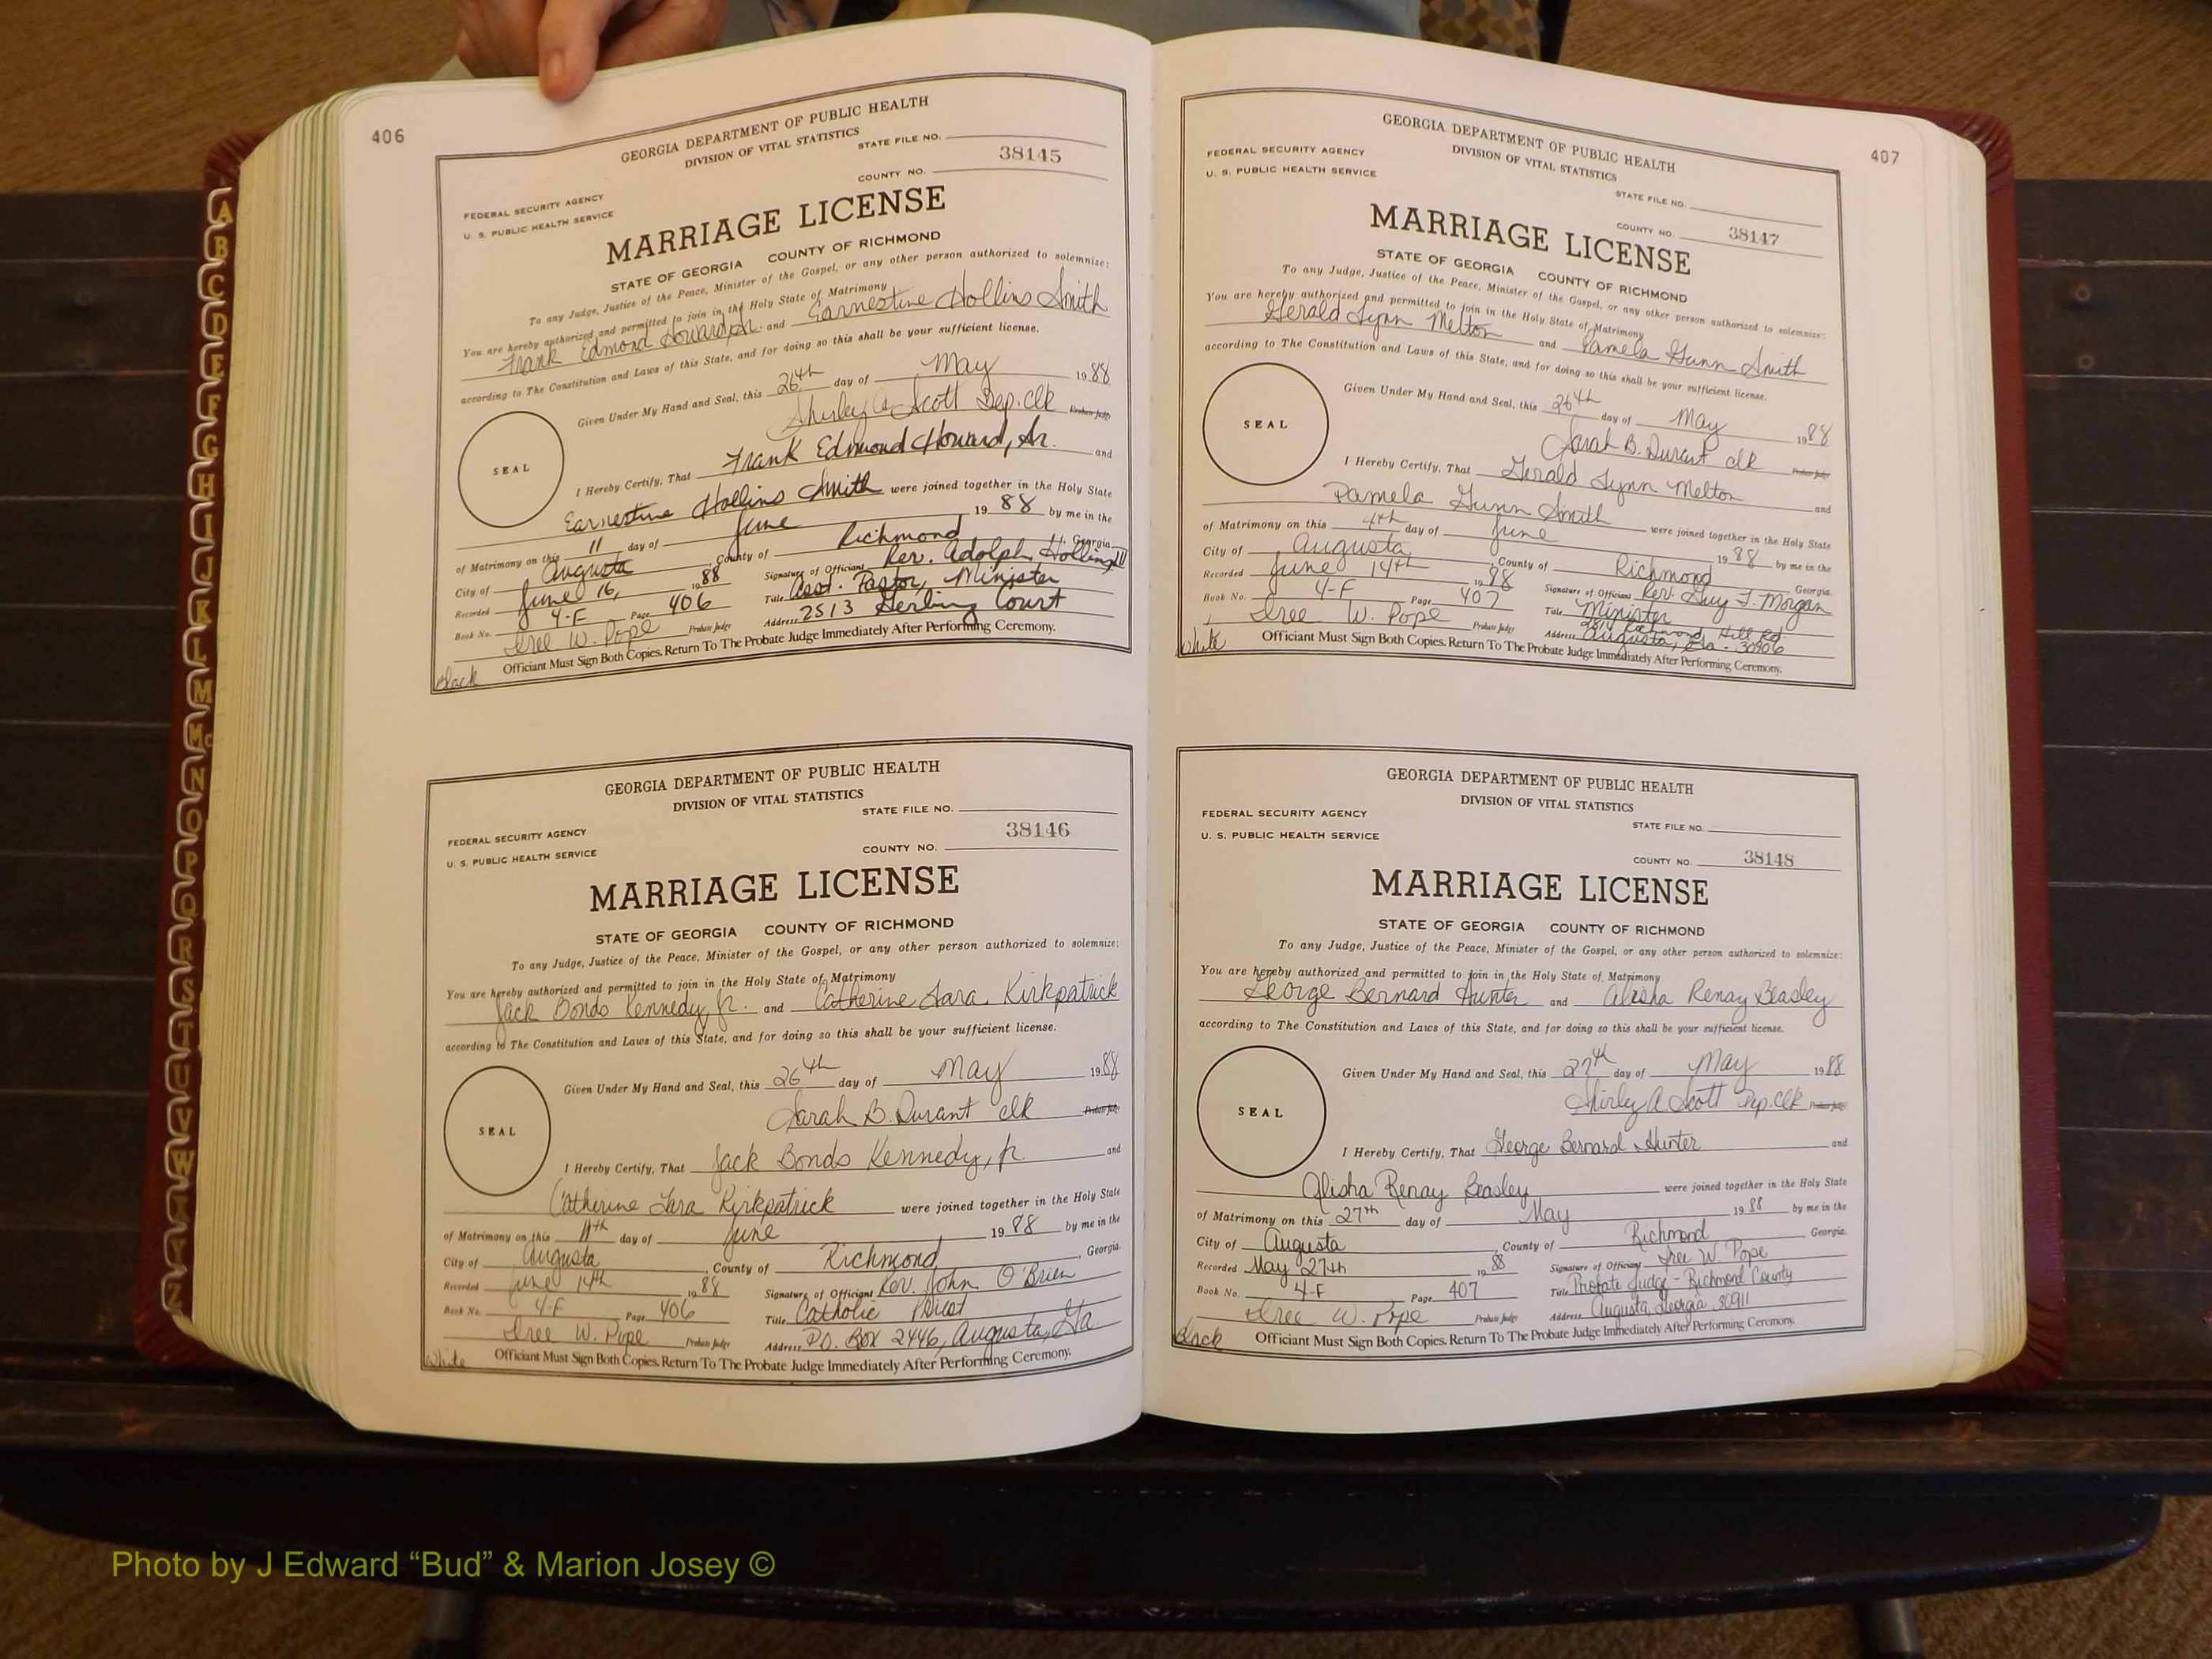 406
GEORGIA DEPARTMENT OF PUBLIC HEALTH
DIVISION OF VITAL STATISTICS
STATE FILE NO.
38145
COUNTY NO.
FEDERAL SECURITY AGENCY
U. S. PUBLIC HEALTH SERVICE
MARRIAGE LICENSE
STATE OF GEORGIA COUNTY OF RICHMOND
To any Judge, Justice of the Peace, Minister of the Gospel, or any other person authorized to solemnize:
You are hereby authorized and permitted to join in the Holy State of Matrimony
Frank Edmond Howard, Sr. and Earnestine Hollins Smith
according to The Constitution and Laws of this State, and for doing so this shall be your sufficient license.
Given Under My Hand and Seal, this 26th day of May 1988
Shirley A. Scott Dep. Clk Probate Judge
SEAL
I Hereby Certify, That Frank Edmond Howard, Sr. and
Earnestine Hollins Smith were joined together in the Holy State
of Matrimony on this 11 day of June 1988 by me in the
City of Augusta, County of Richmond, Georgia.
Recorded June 16, 1988 Signature of Officiant Rev. Adolph Hollins III
Book No. 4-F Page 406 Title Asst. Pastor, Minister
Iree W. Pope Probate Judge Address 2513 Sterling Court
Officiant Must Sign Both Copies. Return To The Probate Judge Immediately After Performing Ceremony.
Black
GEORGIA DEPARTMENT OF PUBLIC HEALTH
DIVISION OF VITAL STATISTICS
STATE FILE NO.
38146
COUNTY NO.
FEDERAL SECURITY AGENCY
U. S. PUBLIC HEALTH SERVICE
MARRIAGE LICENSE
STATE OF GEORGIA COUNTY OF RICHMOND
To any Judge, Justice of the Peace, Minister of the Gospel, or any other person authorized to solemnize:
You are hereby authorized and permitted to join in the Holy State of Matrimony
Jack Bonds Kennedy, Jr. and Catherine Sara Kirkpatrick
according to The Constitution and Laws of this State, and for doing so this shall be your sufficient license.
Given Under My Hand and Seal, this 26th day of May 1988
Sarah B. Durant clk Probate Judge
SEAL
I Hereby Certify, That Jack Bonds Kennedy, Jr. and
Catherine Sara Kirkpatrick were joined together in the Holy State
of Matrimony on this 11th day of June 1988 by me in the
City of Augusta, County of Richmond, Georgia.
Recorded June 14th 1988 Signature of Officiant Rev. John O'Brien
Book No. 4-F Page 406 Title Catholic Priest
Iree W. Pope Probate Judge Address P.O. Box 2446, Augusta, Ga.
Officiant Must Sign Both Copies. Return To The Probate Judge Immediately After Performing Ceremony.
White
407
GEORGIA DEPARTMENT OF PUBLIC HEALTH
DIVISION OF VITAL STATISTICS
FEDERAL SECURITY AGENCY
U. S. PUBLIC HEALTH SERVICE
STATE FILE NO.
COUNTY NO. 38147
MARRIAGE LICENSE
STATE OF GEORGIA COUNTY OF RICHMOND
To any Judge, Justice of the Peace, Minister of the Gospel, or any other person authorized to solemnize:
You are hereby authorized and permitted to join in the Holy State of Matrimony
Gerald Lynn Melton and Pamela Gunn Smith
according to The Constitution and Laws of this State, and for doing so this shall be your sufficient license.
Given Under My Hand and Seal, this 26th day of May 1988
Sarah B. Durant clk Probate Judge
SEAL
I Hereby Certify, That Gerald Lynn Melton and
Pamela Gunn Smith were joined together in the Holy State
of Matrimony on this 4th day of June 1988 by me in the
City of Augusta, County of Richmond Georgia.
Recorded June 14th 1988 Signature of Officiant Rev. Guy J. Morgan
Book No. 4-F Page 407 Title Minister
Iree W. Pope Probate Judge Address Hill Rd. Augusta, Ga. 30906
Officiant Must Sign Both Copies. Return To The Probate Judge Immediately After Performing Ceremony.
White
GEORGIA DEPARTMENT OF PUBLIC HEALTH
DIVISION OF VITAL STATISTICS
FEDERAL SECURITY AGENCY
U. S. PUBLIC HEALTH SERVICE
STATE FILE NO.
COUNTY NO. 38148
MARRIAGE LICENSE
STATE OF GEORGIA COUNTY OF RICHMOND
To any Judge, Justice of the Peace, Minister of the Gospel, or any other person authorized to solemnize:
You are hereby authorized and permitted to join in the Holy State of Matrimony
George Bernard Hunter and Alisha Renay Beasley
according to The Constitution and Laws of this State, and for doing so this shall be your sufficient license.
Given Under My Hand and Seal, this 27th day of May 1988
Shirley A Scott Dep. Clk Probate Judge
SEAL
I Hereby Certify, That George Bernard Hunter and
Alisha Renay Beasley were joined together in the Holy State
of Matrimony on this 27th day of May 1988 by me in the
City of Augusta, County of Richmond Georgia.
Recorded May 27th 1988 Signature of Officiant Iree W. Pope
Book No. 4-F Page 407 Title Probate Judge - Richmond County
Iree W. Pope Probate Judge Address Augusta, Georgia 30911
Officiant Must Sign Both Copies. Return To The Probate Judge Immediately After Performing Ceremony.
Black
A
B
C
D
E
F
G
H
I
J
K
L
M
Mc
N
O
P
Q
R
S
T
U
V
W
X
Y
Z
Photo by J Edward “Bud” & Marion Josey ©